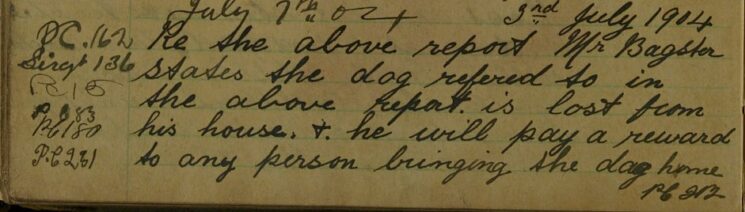 July 7th 04 3rd July 1904
P.C. 162 Re the above report Mr Bagster
Sirgt 136 states the dog refered to in
the above report. is lost from
PC 180 his house. & he will pay a reward
P.C 231 to any person bringing the dog home
PC 212